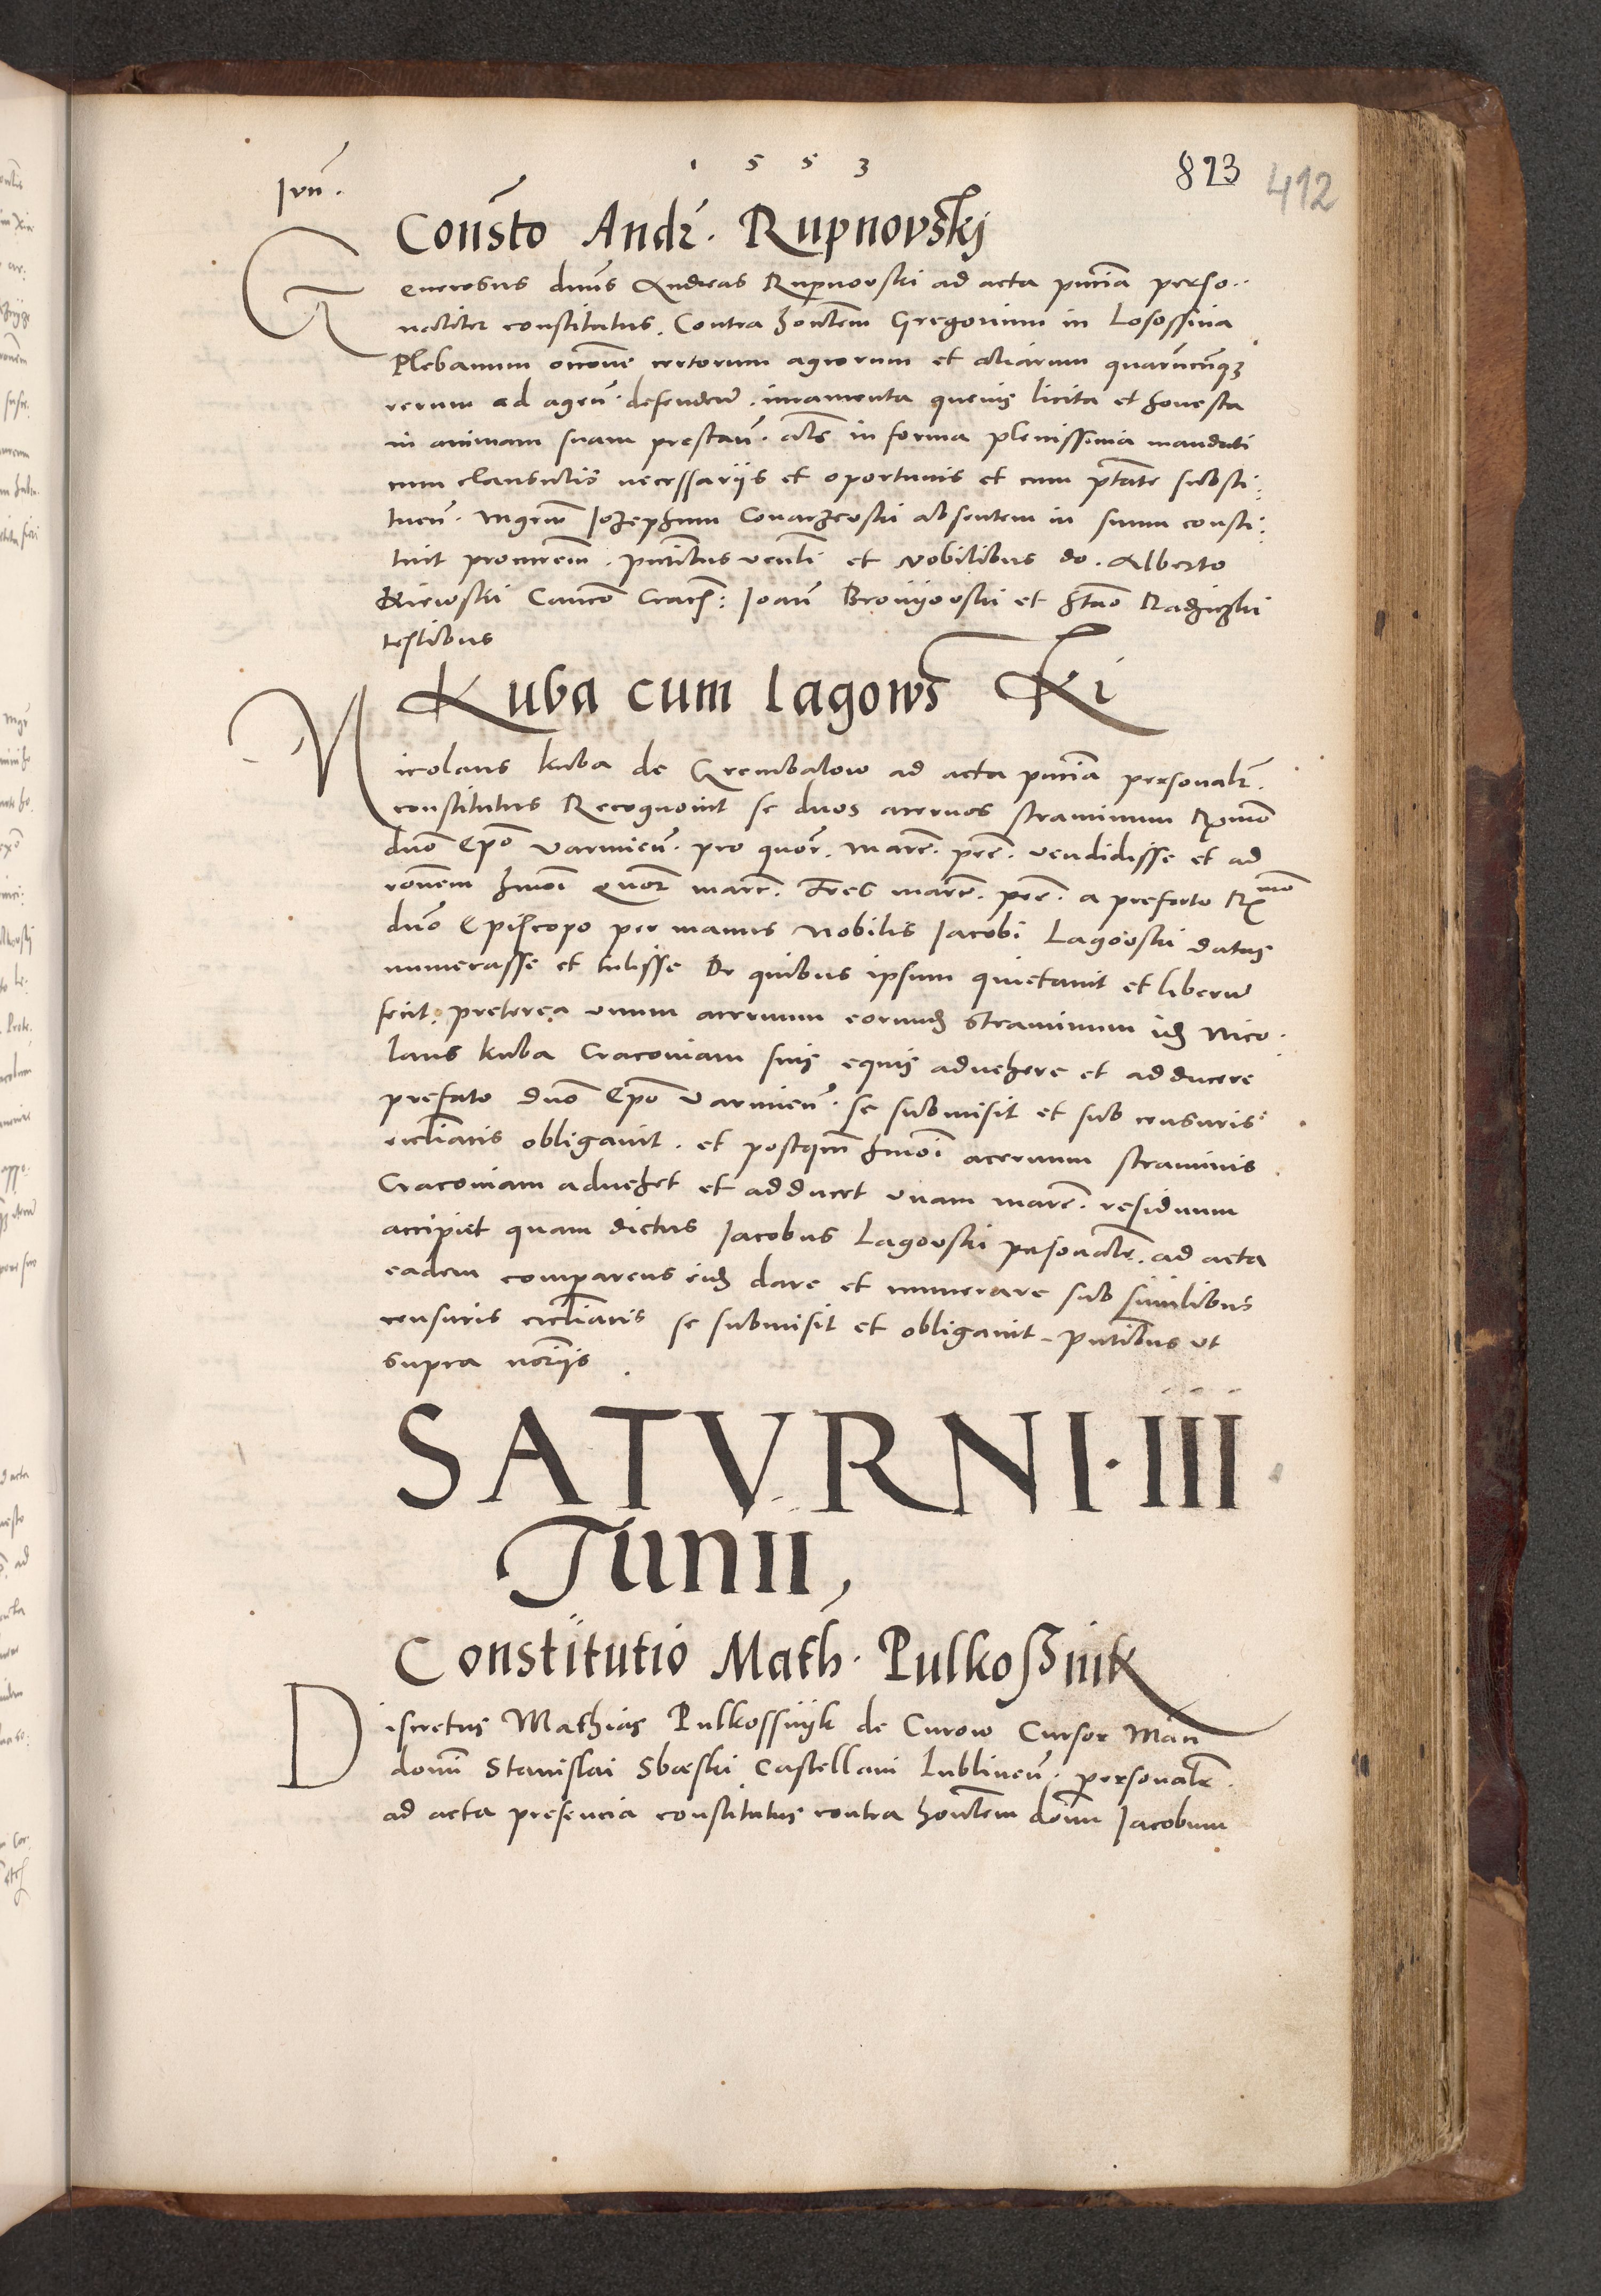 1 5 5 3
823
412
Iun̄.
Cons̄to Andr̄. Rupnovskj
Generosus dnūs Andreas Rupnovski ad acta pn̄cia perso..
naliter constitutus. Contra hon̄lem Gregorium in Lososſina
Plebanum certorum agrorum et aliarum quarūcūqȝ
rerum ad agen̄. defenden̄. iuramenta quevis licita et honesta
in animam suam prestan̄. als̄ in forma plenissima mandati
cum clausulis necessariis et oportunis et cum ptāte substi:
tuen̄. Mgrūm Iozephum Convarzevski absentem in suum consti:
tuit procurēm. pntībus venlī et Nobilibus do. Alberto
Kiiewski Canco Crac̄: Ioan̄ Broniovski et Radziczki
testibus
Kuba cum Lagows̄ Ki
Nicolaus Kuba de Grembalow ad acta pn̄cia personalr̄.
constitutus Recognovit se duos acervos straminum Rx̄mo
dno Epo Varmien̄. pro quor̄. marc̄. pec̄. vendidisse et ad
rōnem hmōi quor̄ marc̄. Tres marc̄. pec̄. a prefato Rx̄mo
dno Episcopo per manus Nobilis Iacobi Lagovski datas
numerasse et tulisse De quibus ipsum quietavit et liberum
fecit. preterea unum acervum eorundē straminum idē Nico.
laus Kuba Cracoviam suis equis advehere et adducere
prefato dno Epo Varmien̄. se submisit et sub censuris
ecclīaticis obligavit. et postqm̄ hmōi acervum straminis
Cracoviam advehet et adducet unam marc̄. residuum
accipiet quam dictus Iacobus Lagovski personalr̄. ad acta
eadem comparens eidē dare et numerare sub similibus
censuris ecclīaticis se submisit et obligavit. pntībus ut
supra
SATVRNI · III
Iunii,
Constitutio Math. Pulkoßnik
Discretus Mathias Pulkossnijk de Curow Cursor Man
domī Stanislai Sbąski Castellani Lublinen̄. personalr̄.
ad acta presencia constitutus contra hon̄lem domī Iacobum